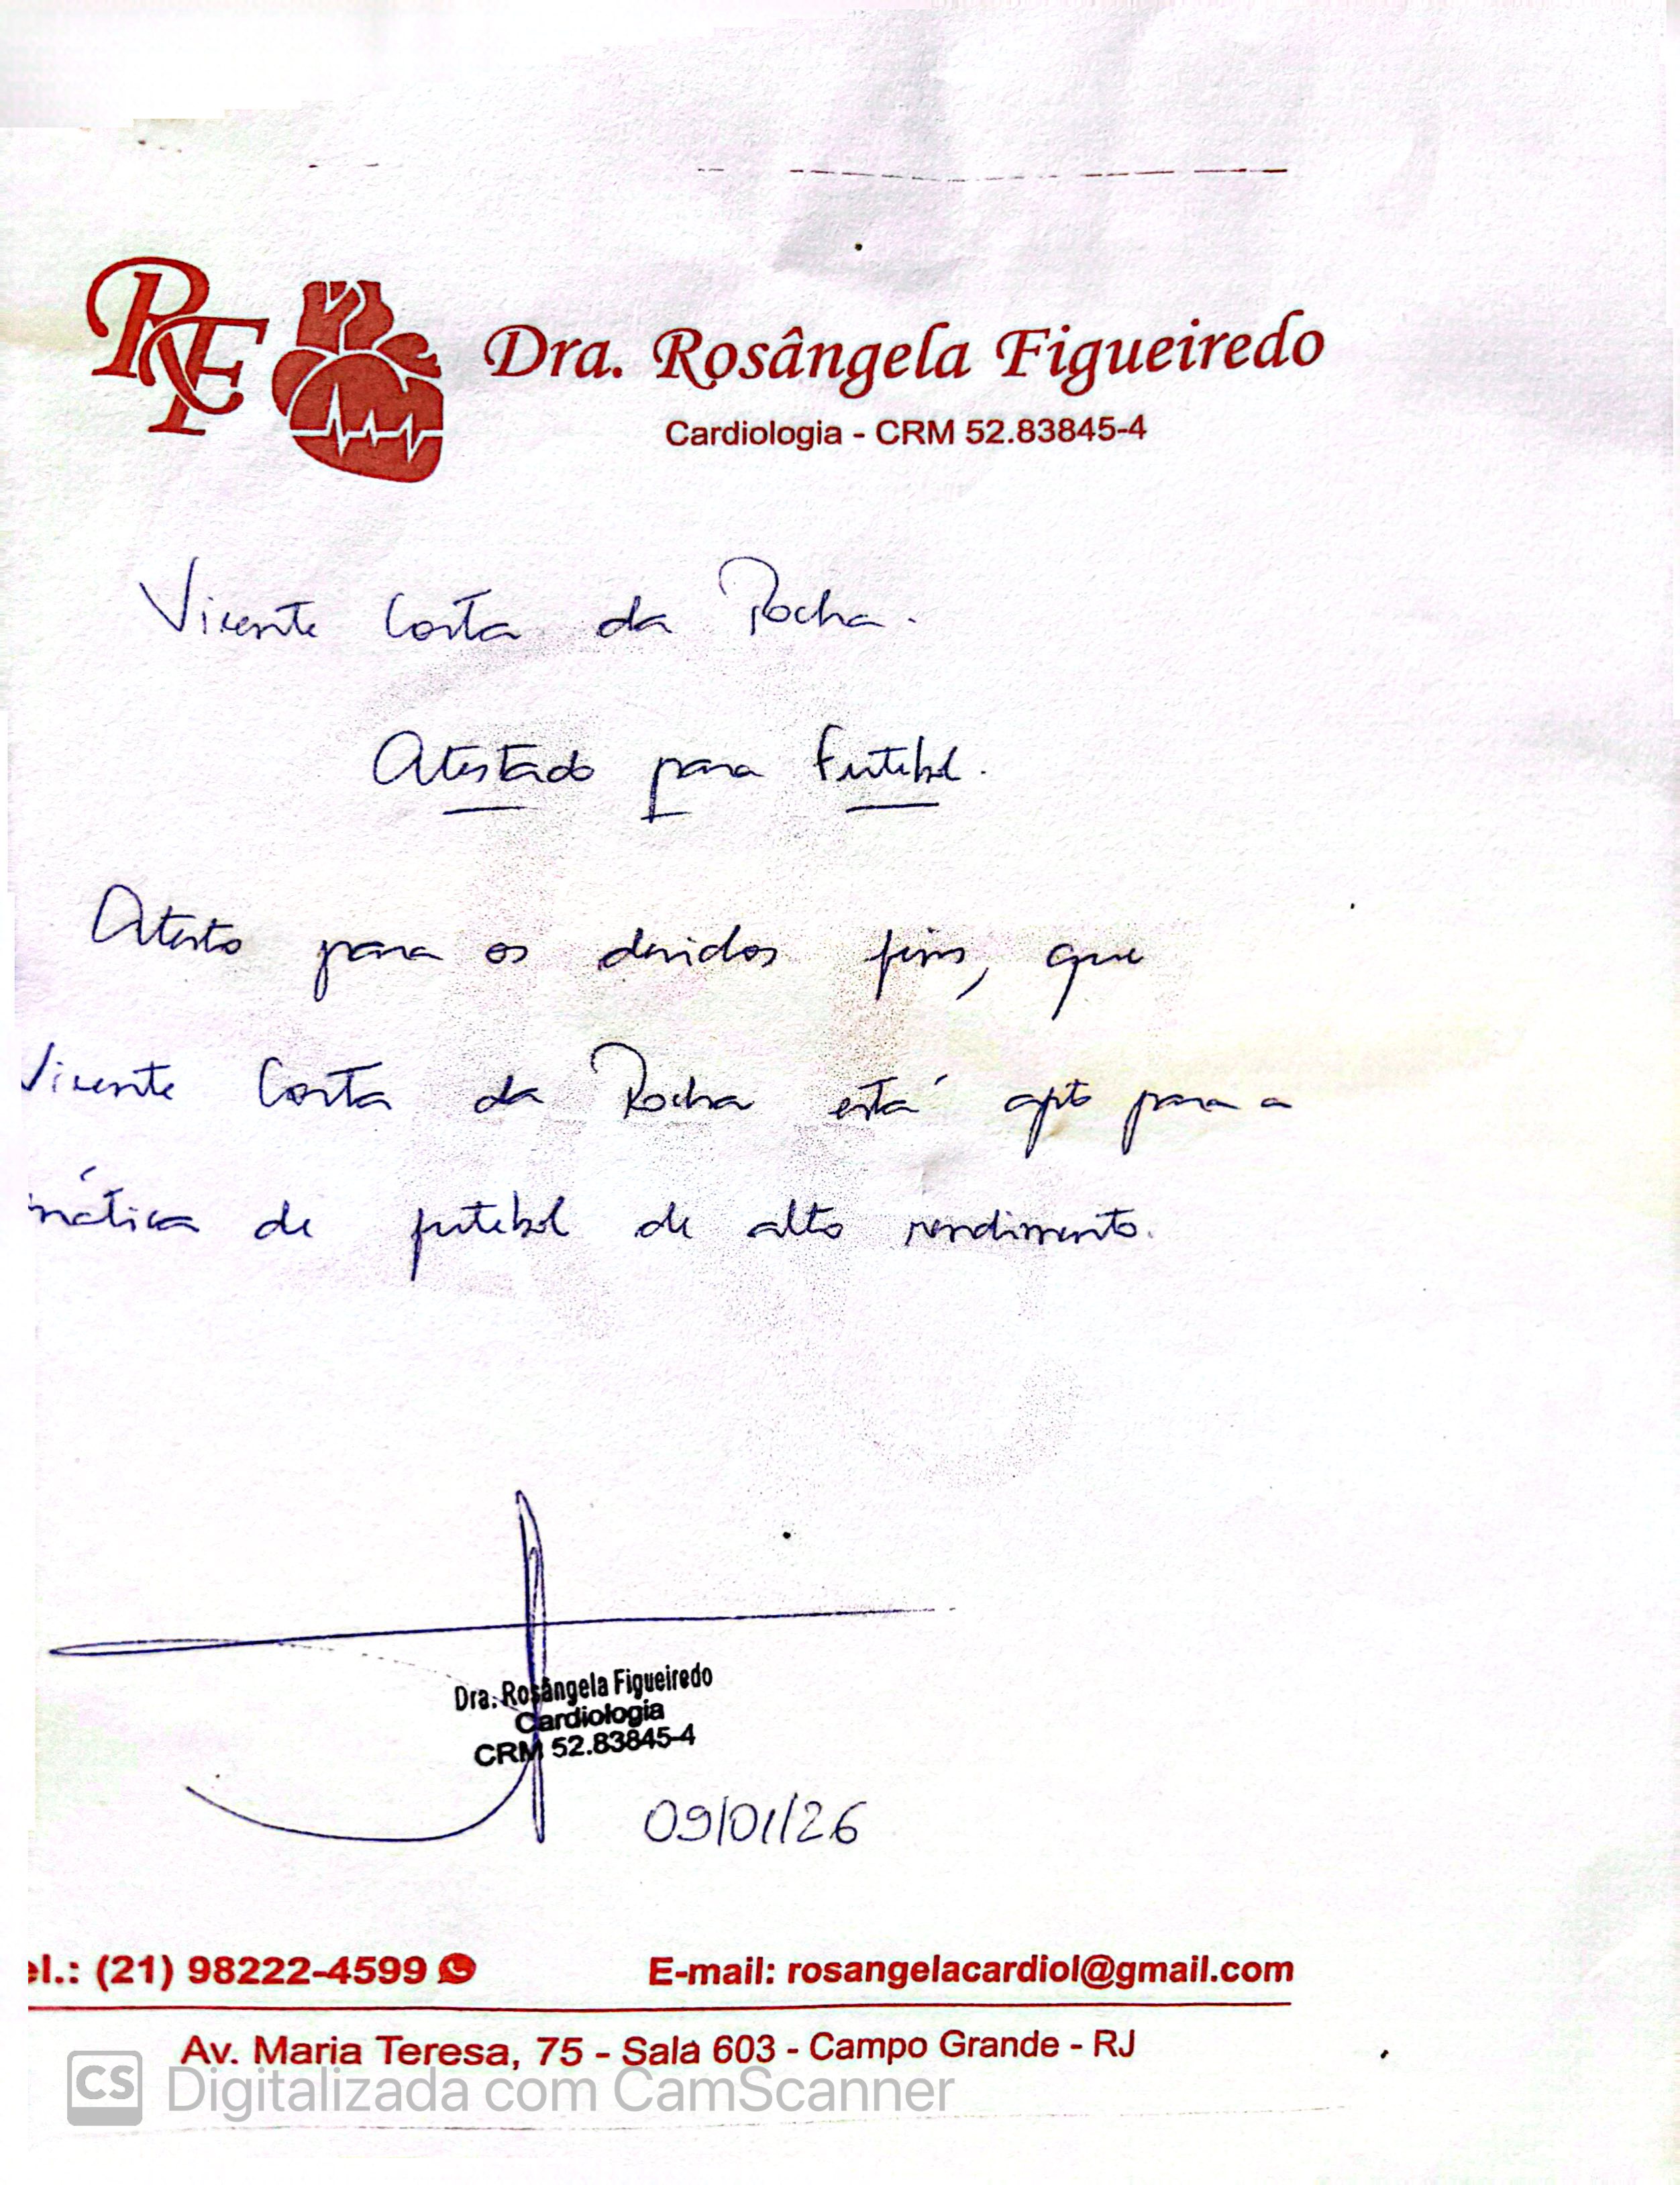 RF
Dra. Rosângela Figueiredo
Cardiologia - CRM 52.83845-4
Vicente Costa da Rocha.
Atestado para Futebol.
Atesto para os devidos fins, que
Vicente Costa da Rocha está apto para a
prática de futebol de alto rendimento.
Dra. Rosângela Figueiredo
Cardiologia
CRM 52.83845-4
09/01/26
el.: (21) 98222-4599
E-mail: rosangelacardiol@gmail.com
Av. Maria Teresa, 75 - Sala 603 - Campo Grande - RJ
CS Digitalizada com CamScanner